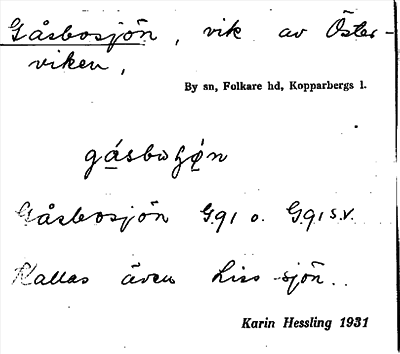 Gåsbosjön, vik av Öster-
viken,
By sn, Folkare hd, Kopparbergs l.
gåsbo
Gåsbosjön G.91 o. G.91 s.v.
Kallas även Liss-sjön.
Karin Hessling 1931